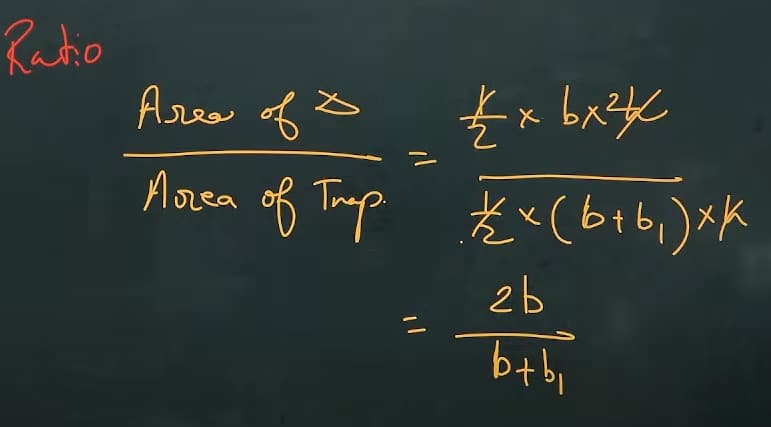 Ratio
Area of △ / Area of Trap. = 1/2 × b × 2h / 1/2 × (b+b₁) × h
= 2b / b+b₁